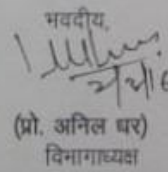 भवदीय,
(प्रो. अनिल धर)
विभागाध्यक्ष